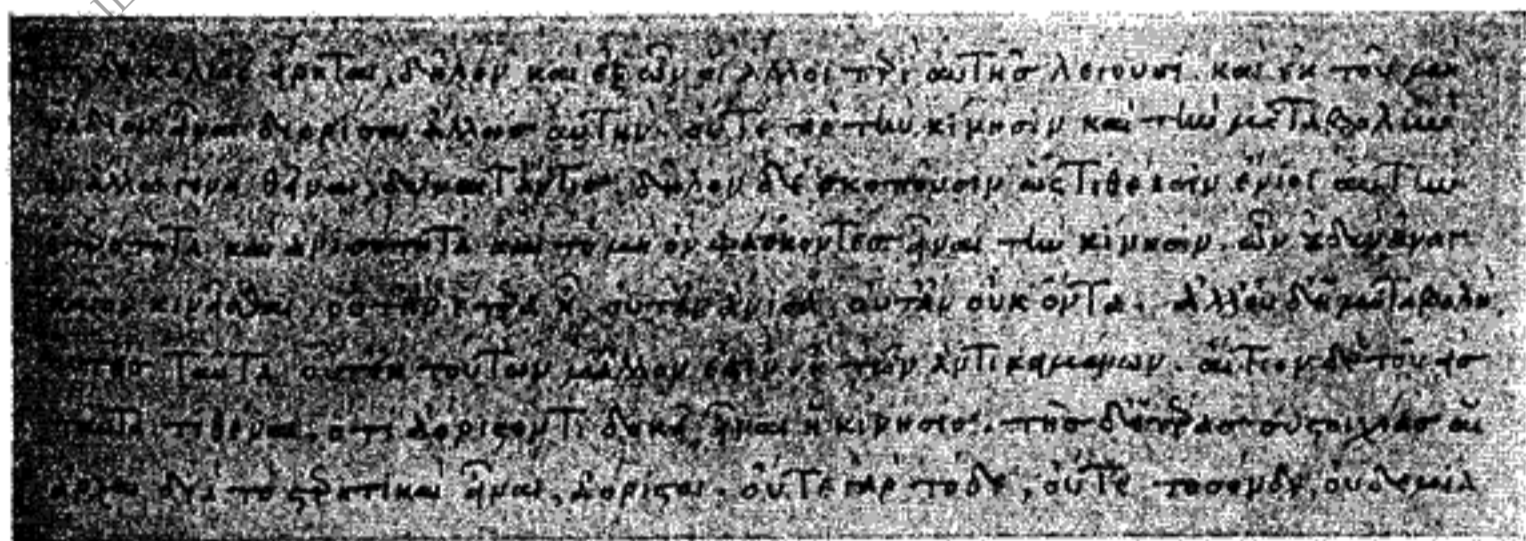 δὲ καλῶς εἴρηται, δῆλον καὶ ἐξ ὧν οἱ ἄλλοι περὶ αὐτῆς λέγουσι. καὶ ἐκ τοῦ μὴ
ῥάδιον εἶναι διορίσαι ἄλλως αὐτήν. οὔτε γὰρ τὴν κίνησιν καὶ τὴν μεταβολὴν
ἄλλω γένει θεῖναι, δύναιτ' ἄν τις. δῆλον δὲ σκοποῦσιν ὡς τιθέασιν ἔνιοι αὐτὴν
ἑτερότητα καὶ ἀνισότητα καὶ τὸ μὴ ὂν φάσκοντες εἶναι τὴν κίνησιν. ὧν οὐδὲν ἀναγ
καῖον κινεῖσθαι, οὔτ' ἂν ἕτερα ἦ, οὔτ' ἂν ἄνισα, οὔτ' ἂν οὐκ ὄντα. ἀλλ' οὐδ' ἡ μεταβολὴ
εἰς ταῦτα οὔτ' ἐκ τούτων μᾶλλον ἐστιν ἢ τῶν ἀντικειμένων. αἴτιον δὲ τοῦ εἰς
ταῦτα τιθέναι, ὅτι ἀόριστόν τι δοκεῖ εἶναι ἡ κίνησις. τῆς δ' ἑτέρας συστοιχίας αἱ
ἀρχαὶ διὰ τὸ στερητικαὶ εἶναι, ἀόριστοι. οὔτε γὰρ τόδε, οὔτε οὐδεμία